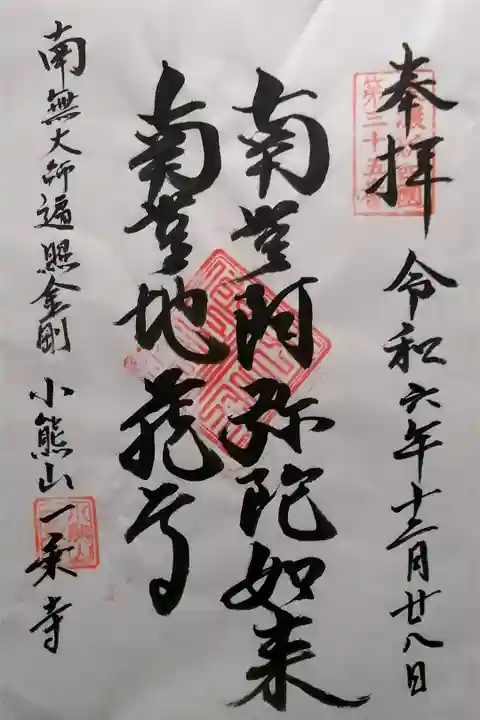 奉拝 令和六年十二月廿八日
第三十五番
南無阿弥陀如来
南無地蔵尊
南無大師遍照金剛 小熊山一乗寺